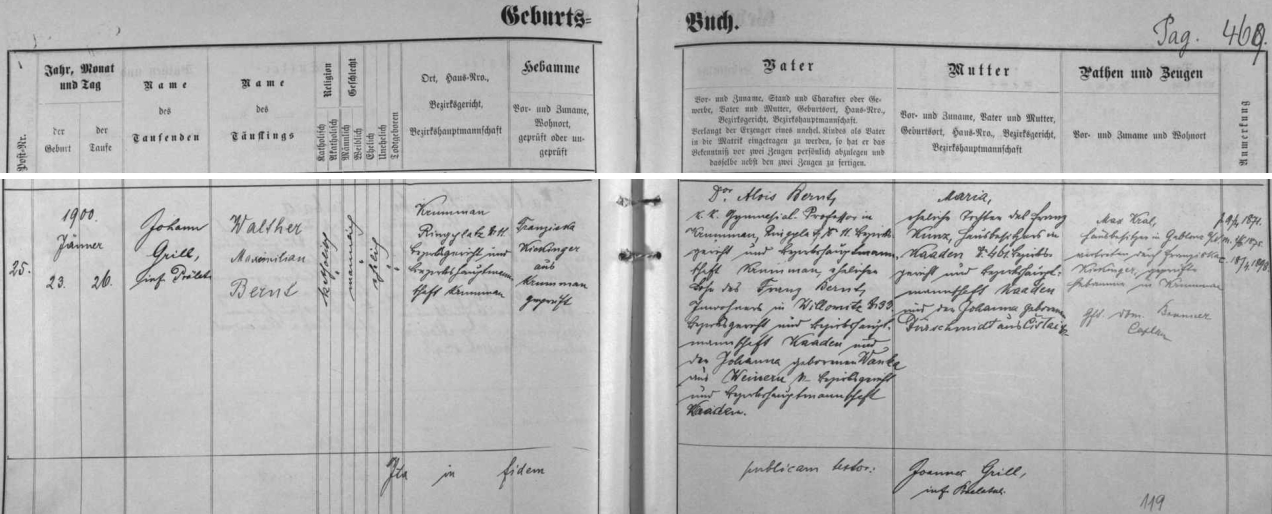 Geburts=
Buch.
Pag. 469.
Post-Nr.
Jahr, Monat
und Tag
der
Geburt
der
Taufe
Name
des
Taufenden
Name
des
Täuflings
Religion
Katholisch
Akatholisch
Geschlecht
Männlich
Weiblich
Ehelich
Unehelich
Todtgeboren
Ort, Haus-Nro.,
Bezirksgericht,
Bezirkshauptmannschaft
Hebamme
Vor- und Zuname,
Wohnort,
geprüft oder un-
geprüft
Vater
Vor- und Zuname, Stand und Charakter oder Ge-
werbe, Vater und Mutter, Geburtsort, Haus-Nro.,
Bezirksgericht, Bezirkshauptmannschaft.
Verlangt der Erzeuger eines unehel. Kindes als Vater
in die Matrik eingetragen zu werden, so hat er das
Bekenntniß vor zwei Zeugen persönlich abzulegen und
dasselbe nebst den zwei Zeugen zu fertigen.
Mutter
Vor- und Zuname, Vater und Mutter,
Geburtsort, Haus-Nro., Bezirksgericht,
Bezirkshauptmannschaft
Pathen und Zeugen
Vor- und Zuname und Wohnort
Anmerkung
25.
1900.
Jänner
23. 26.
Johann
Grill,
inf. Prälat
Walther
Maximilian
Bernt
katholisch
männlich
ehelich
Krummau
Ringplatz N. 11
Bezirksgericht und
Bezirkshauptmann-
schaft Krummau
Franziska
Kieslinger
aus
Krummau
geprüft
Dor. Alois Bernt,
k. k. Gymnasial-Professor in
Krummau, Ringplatz N. 11. Bezirks-
gericht und Bezirkshauptmann-
schaft Krummau, ehelicher
Sohn des Franz Bernt,
Inwohners in Willomitz N. 33
Bezirksgericht und Bezirkshaupt-
mannschaft Kaaden und
der Johanna gebornen Wanka
aus Weinern Bezirksgericht
und Bezirkshauptmannschaft
Kaaden.
Maria,
eheliche Tochter des Franz
Kunz, Hausbesitzers in
Kaaden N. 401 Bezirks-
gericht und Bezirkshaupt-
mannschaft Kaaden
und der Johanna gebornen
aus
Max Král,
Hausbesitzer in Gablonz
vertreten durch Franziska
Kieslinger, geprüfte
Hebamme in Krummau
Brunner
Caplan
1871.
Ita in fidem
publicam testor:
Joannes Grill,
inf. Praelatus.
119